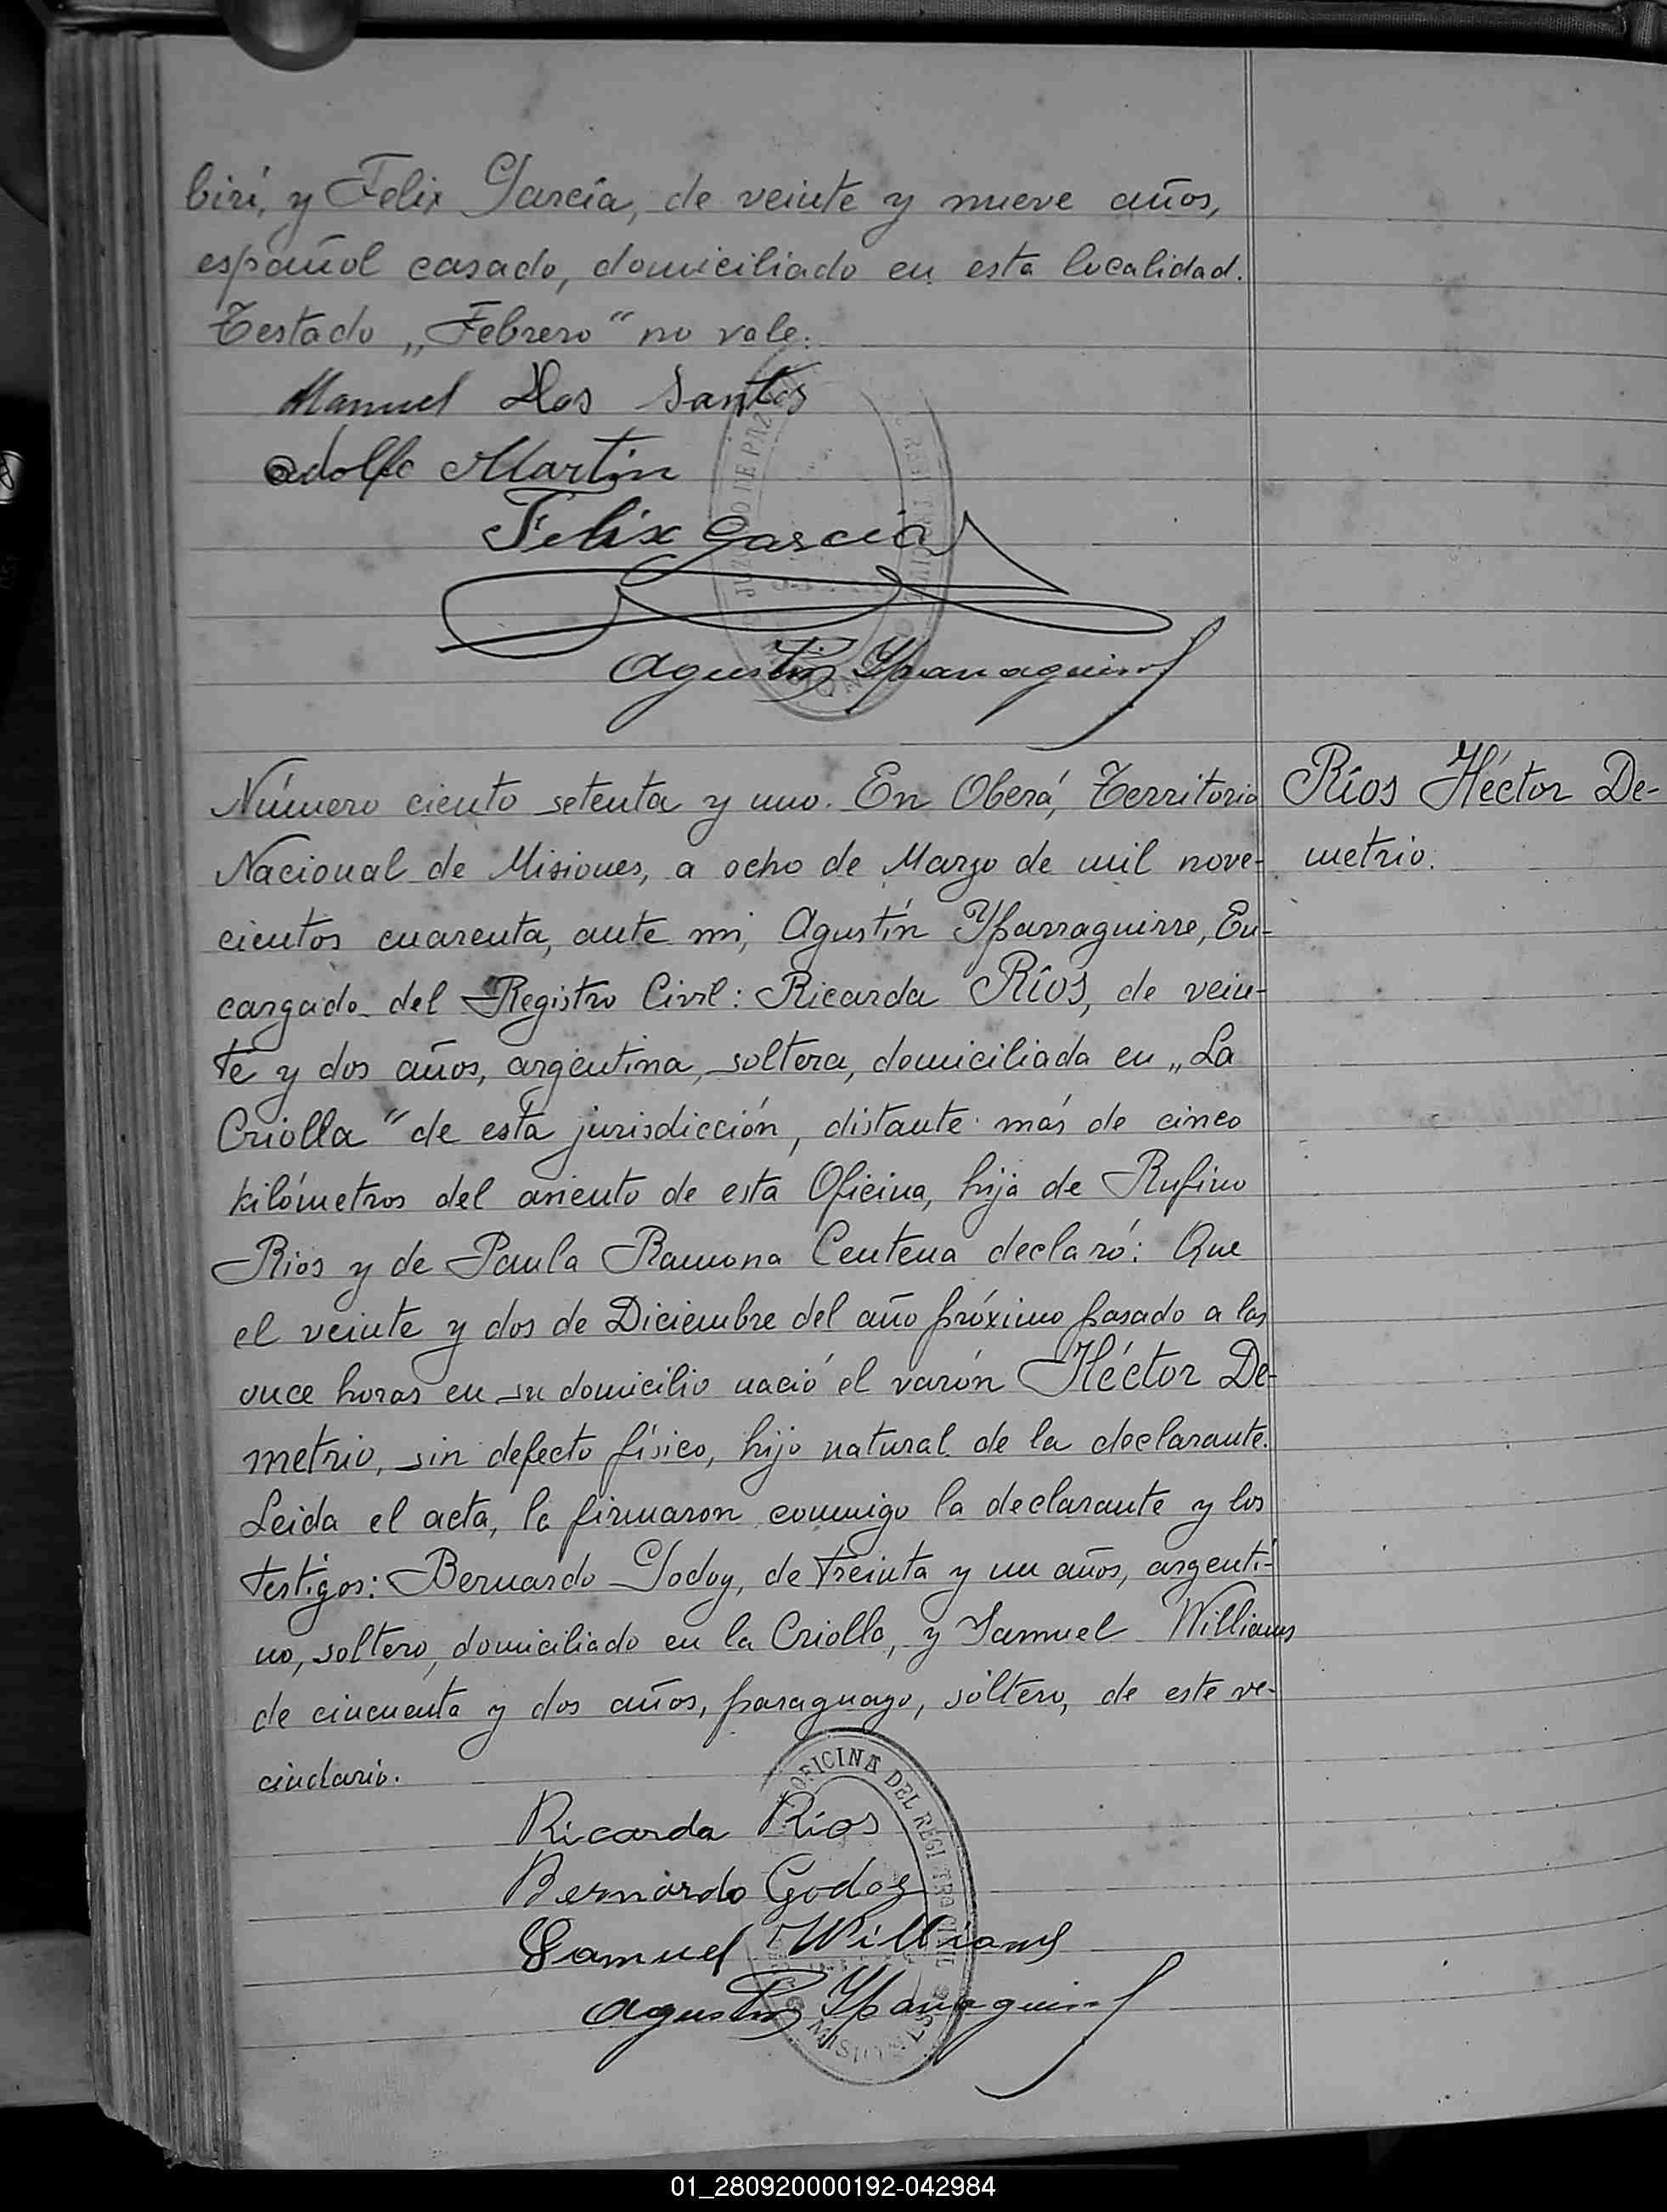 birí, y Felix García, de veinte y nueve años,
español casado, domiciliado en esta localidad.
Testado „Febrero“ no vale.
Manuel Dos Santos
Adolfo Martin
Felix Garcia
Agustin Yparraguirre
Número ciento setenta y uno. En Oberá, Territorio
Ríos Héctor De-
metrio.
Nacional de Misiones, a ocho de Marzo de mil nove-
cientos cuarenta, ante mi, Agustín Yparraguirre, En-
cargado del Registro Civil: Ricarda Ríos, de vein-
te y dos años, argentina, soltera, domiciliada en „La
Criolla“ de esta jurisdicción, distante más de cinco
kilómetros del asiento de esta Oficina, hija de Rufino
Rios y de Paula Ramona Centena declaró: Que
el veinte y dos de Diciembre del año próximo pasado a las
once horas en su domicilio nació el varón Héctor De-
metrio, sin defecto físico, hijo natural de la declarante.
Leida el acta, la firmaron conmigo la declarante y los
testigos: Bernardo Godoy, de treinta y un años, argenti-
no, soltero, domiciliado en la Criolla, y Samuel Williams
de cincuenta y dos años, paraguayo, soltero, de este ve-
cindario.
OFICINA DEL REGISTRO CIVIL
Ricarda Ríos
Bernardo Godoy
Samuel Williams
Agustin Yparraguirre
01_280920000192-042984